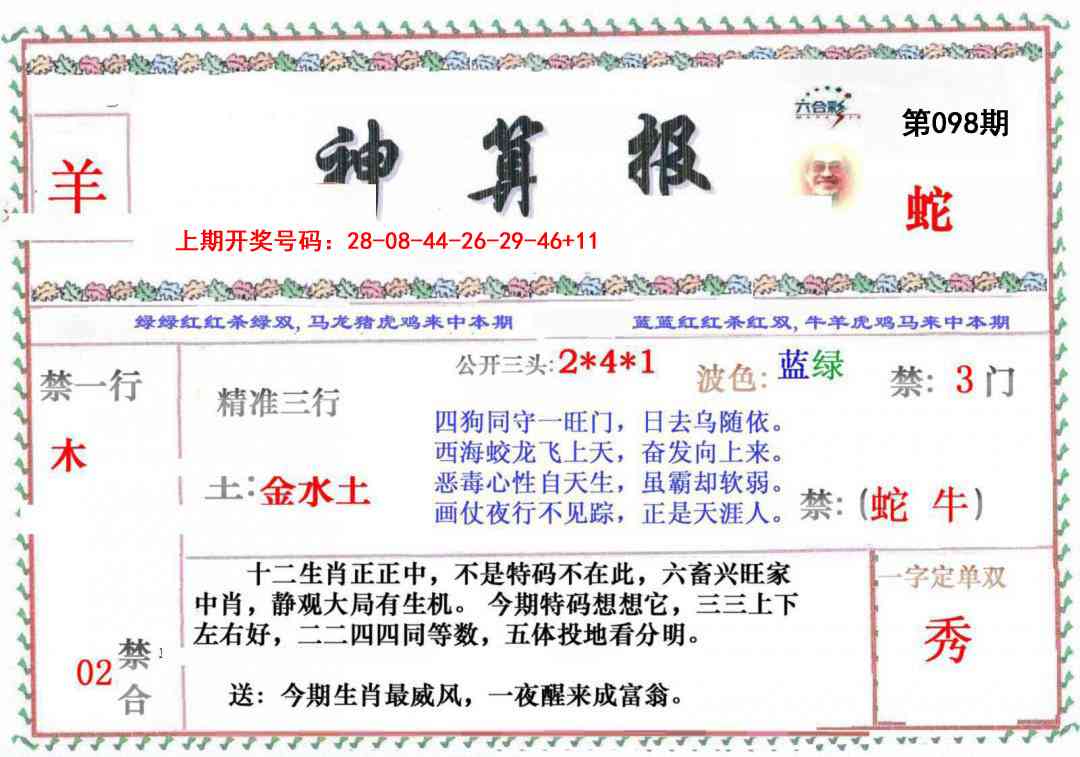 六合彩
第098期
神算报
羊
蛇
上期开奖号码：28-08-44-26-29-46+11
绿绿红红杀绿双,马龙猪虎鸡来中本期
蓝蓝红红杀红双,牛羊虎鸡马来中本期
禁一行
木
精准三行
土:金水土
公开三头:2*4*1
波色:蓝绿
禁:3门
四狗同守一旺门，日去乌随依。
西海蛟龙飞上天，奋发向上来。
恶毒心性自天生，虽霸却软弱。
画仗夜行不见踪，正是天涯人。
禁:(蛇 牛)
十二生肖正正中，不是特码不在此，六畜兴旺家
中肖，静观大局有生机。今期特码想想它，三三上下
左右好，二二四四同等数，五体投地看分明。
送：今期生肖最威风，一夜醒来成富翁。
一字定单双
秀
02
禁
合